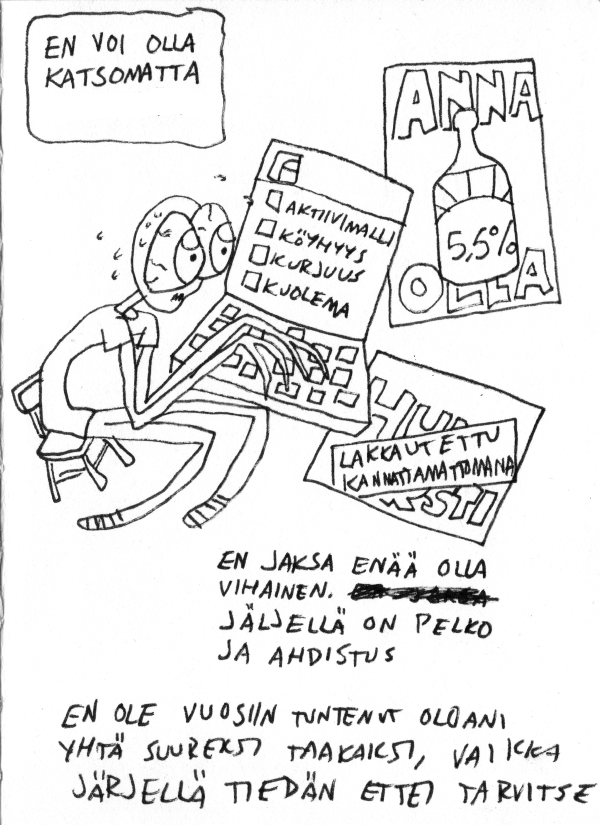 EN VOI OLLA
KATSOMATTA
ANNA
5,5%
OLLA
AKTIIVIMALLI
KÖYHYYS
KURJUUS
KUOLEMA
LAKKAUTETTU
KANNATTAMATTOMANA
EN JAKSA ENÄÄ OLLA
VIHAINEN.
JÄLJELLÄ ON PELKO
JA AHDISTUS
EN OLE VUOSIIN TUNTENUT OLOANI
YHTÄ SUUREKSI TAAKAKSI, VAIKKA
JÄRJELLÄ TIEDÄN ETTEI TARVITSE